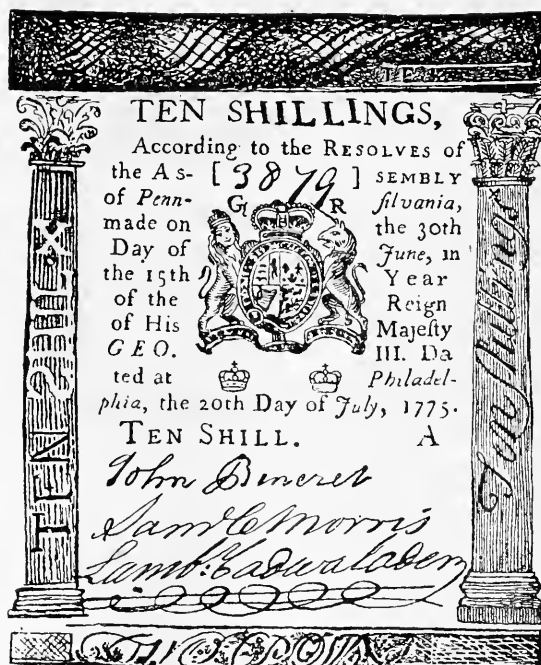 TEN SHILLINGS,
According to the RESOLVES of
the As- [3879] SEMBLY
of Penn- G R ſilvania,
made on the 30th
Day of June, in
the 15th Year
of the Reign
of His Majeſty
GEO. III. Da
ted at Philadel-
phia, the 20th Day of July, 1775.
TEN SHILL. A
John
Saml C Morris
Lambt. Cadwalader
TEN
Ten Shillings